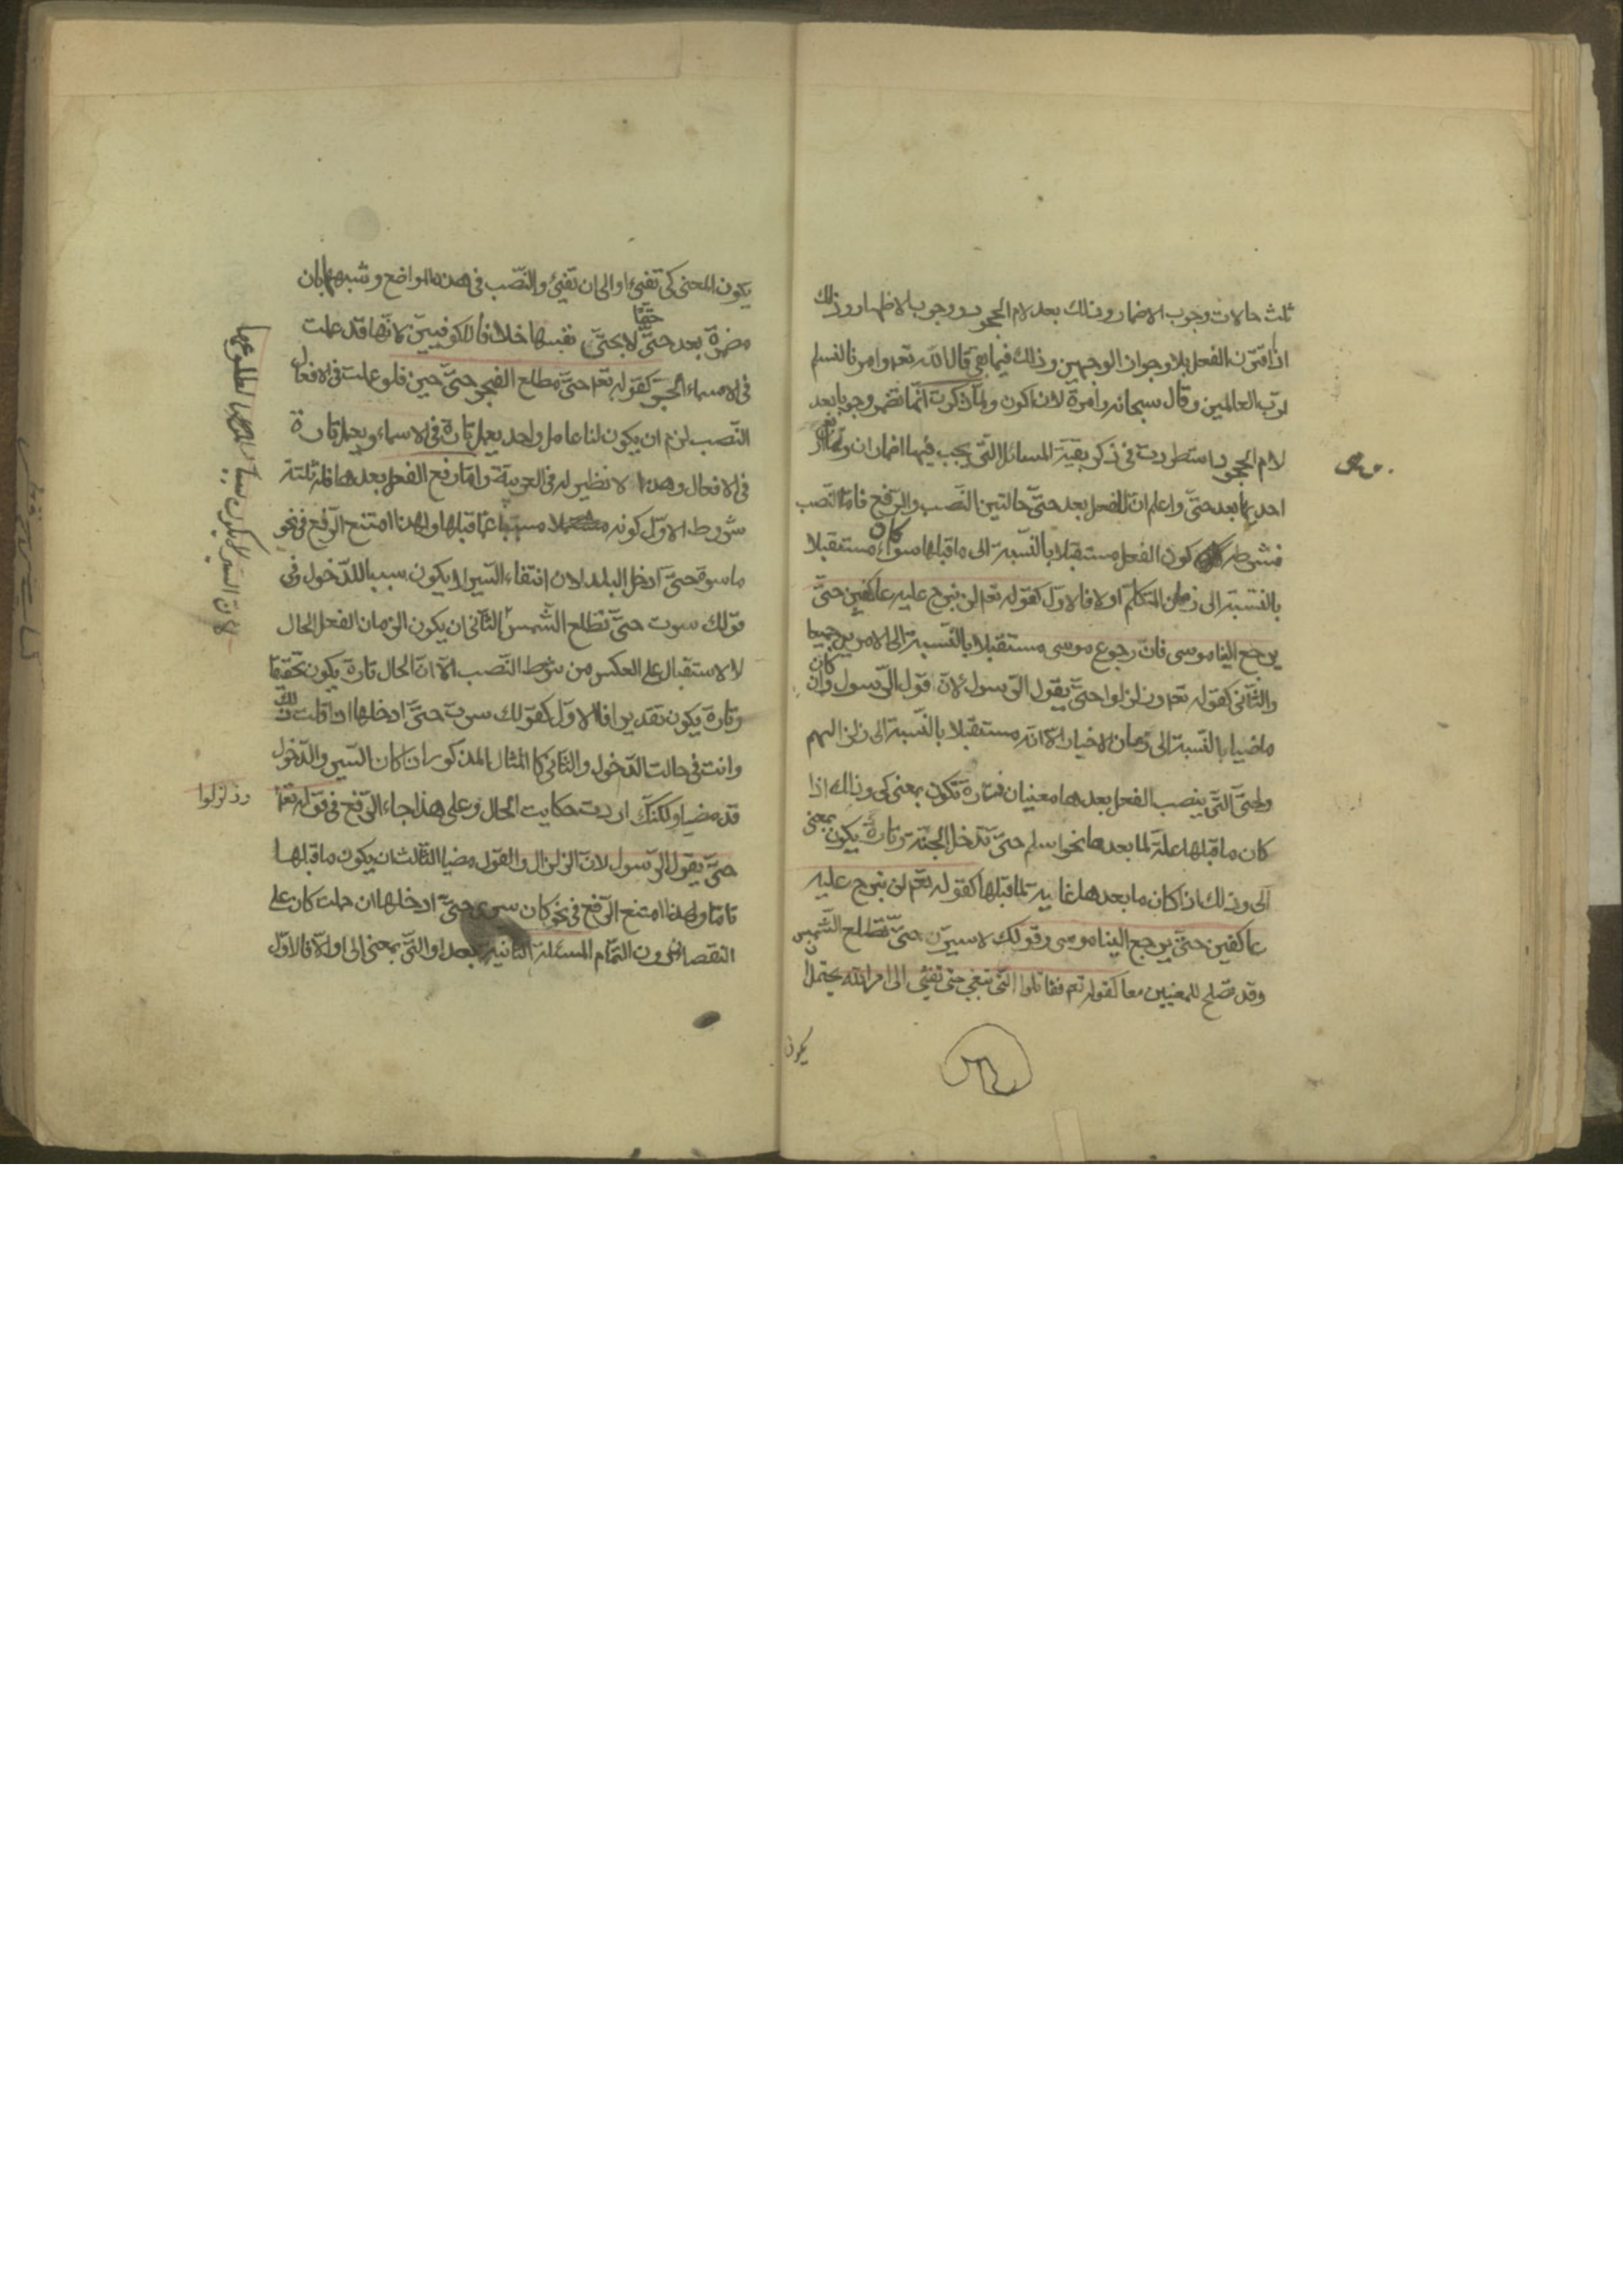 ثلث حالات وجوب الاضمار وذلك بعد لام الجحود ووجوب الاظهار وذلك
اذا اقترن الفعل بلا وجواز الوجهين وذلك فيما بقي قال الله تعم وامرنا لنسلم
لرب العالمين وقال سبحانه وامرة لان اكون ولما ذكرت انها تضمر وجوبا بعد
لام الجحود استطردت في ذكر بقية المسائل التي يجب فيها اضمار ان وهي اربع
احديها بعد حتّى واعلم انّ للفعل بعد حتّى حالتين النّصب والرّفع فامّا النّصب
فشرطه كون الفعل مستقبلا بالنّسبة الى ما قبلها سواء كان مستقبلا
بالنّسبة الى زمان المتكلّم اولا فالاوّل كقوله تعم لن نبرح عليه عاكفين حتّى
يرجع الينا موسى فانّ رجوع موسى مستقبلا بالنّسبة الى الامرين جميعا
والثّاني كقوله تعم وزلزلوا حتّى يقول الرّسول لانّ قول الرّسول وان كان
ماضيا بالنّسبة الى زمان الاخبار الّا انّه مستقبلا بالنّسبة الى زلزالهم
ولحتّى التّي ينصب الفعل بعدها معنيان فتارة تكون بمعنى كي وذلك اذا
كان ما قبلها علّة لما بعدها نحو اسلم حتّى تدخل الجنّة وتارة يكون بمعنى
الى وذلك اذا كان ما بعدها غاية لما قبلها كقوله تعم لن نبرح عليه
عاكفين حتّى يرجع الينا موسى وقولك لاسيرن حتّى تطلع الشّمس
وقد تصلح للمعنيين معا كقوله تعم فقاتلوا التّي تبغي حتى تفئي الى امر الله يحتمل ان
يكون
يكون المعنى كي تفئ او الى ان تفئ والنّصب في هذه المواضع وشبهها بان
مضمرة بعد حتّى حتمًا لا بحتّى نفسها خلافا للكوفيين لانّها قد عملت
في الاسماء الجرّ كقوله تعم حتّى مطلع الفجر حتّى حين فلو عملت في الافعال
النّصب لزم ان يكون لنا عامل واحد يعمل تارة في الاسماء ويعمل تارة
في الافعال وهذا لا نظير له في العربيّة وامّا رفع الفعل بعدها فله ثلثة
شروط الاوّل كونه مسببا عمّا قبلها ولهذا امتنع الرّفع في نحو
ما سرت حتّى ادخل البلد لان انتفاء السّير لا يكون سببا للدّخول وفي
قولك سرت حتّى تطلع الشّمس الثّاني ان يكون الزمان الفعل الحال
لا الاستقبال على العكس من شرط النّصب الّا انّ الحال تارة يكون تحقيقا
وتارة يكون تقديرا فالاوّل كقولك سرت حتّى ادخلها اذا قلت ذلك
وانت في حالت الدّخول والثّاني كالمثال المذكور اذا كان السّير والدّخول
قد مضيا ولكنّك اردت حكايت الحال وعلى هذا جاء الرّفع في قوله تعم
وزلزلوا
حتّى يقول الرّسول لانّ الزلزال والقول مضيا الثّالث ان يكون ما قبلها
تامّا ولهذا امتنع الرّفع في نحو كان سيري حتّى ادخلها ان حملت كان على
النقصان دون التّمام المسئلة الثّانية بعد او التّي بمعنى الى او الّا فالاوّل